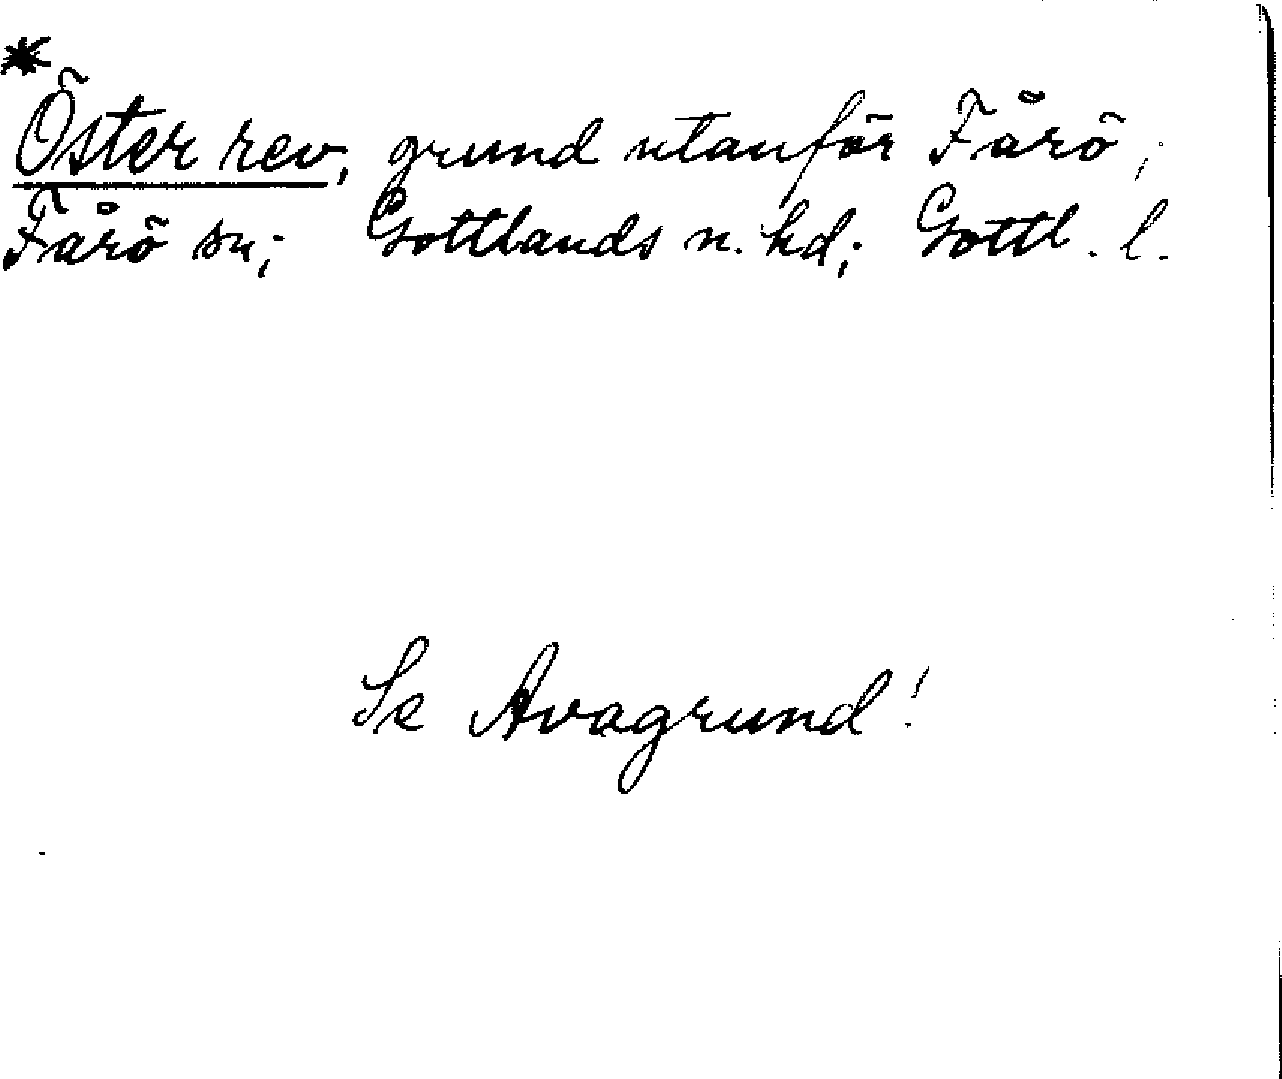 *
Öster rev, grund utanför Fårö;
Fårö sn; Gottlands n. hd; Gottl. l.
Se Avagrund!